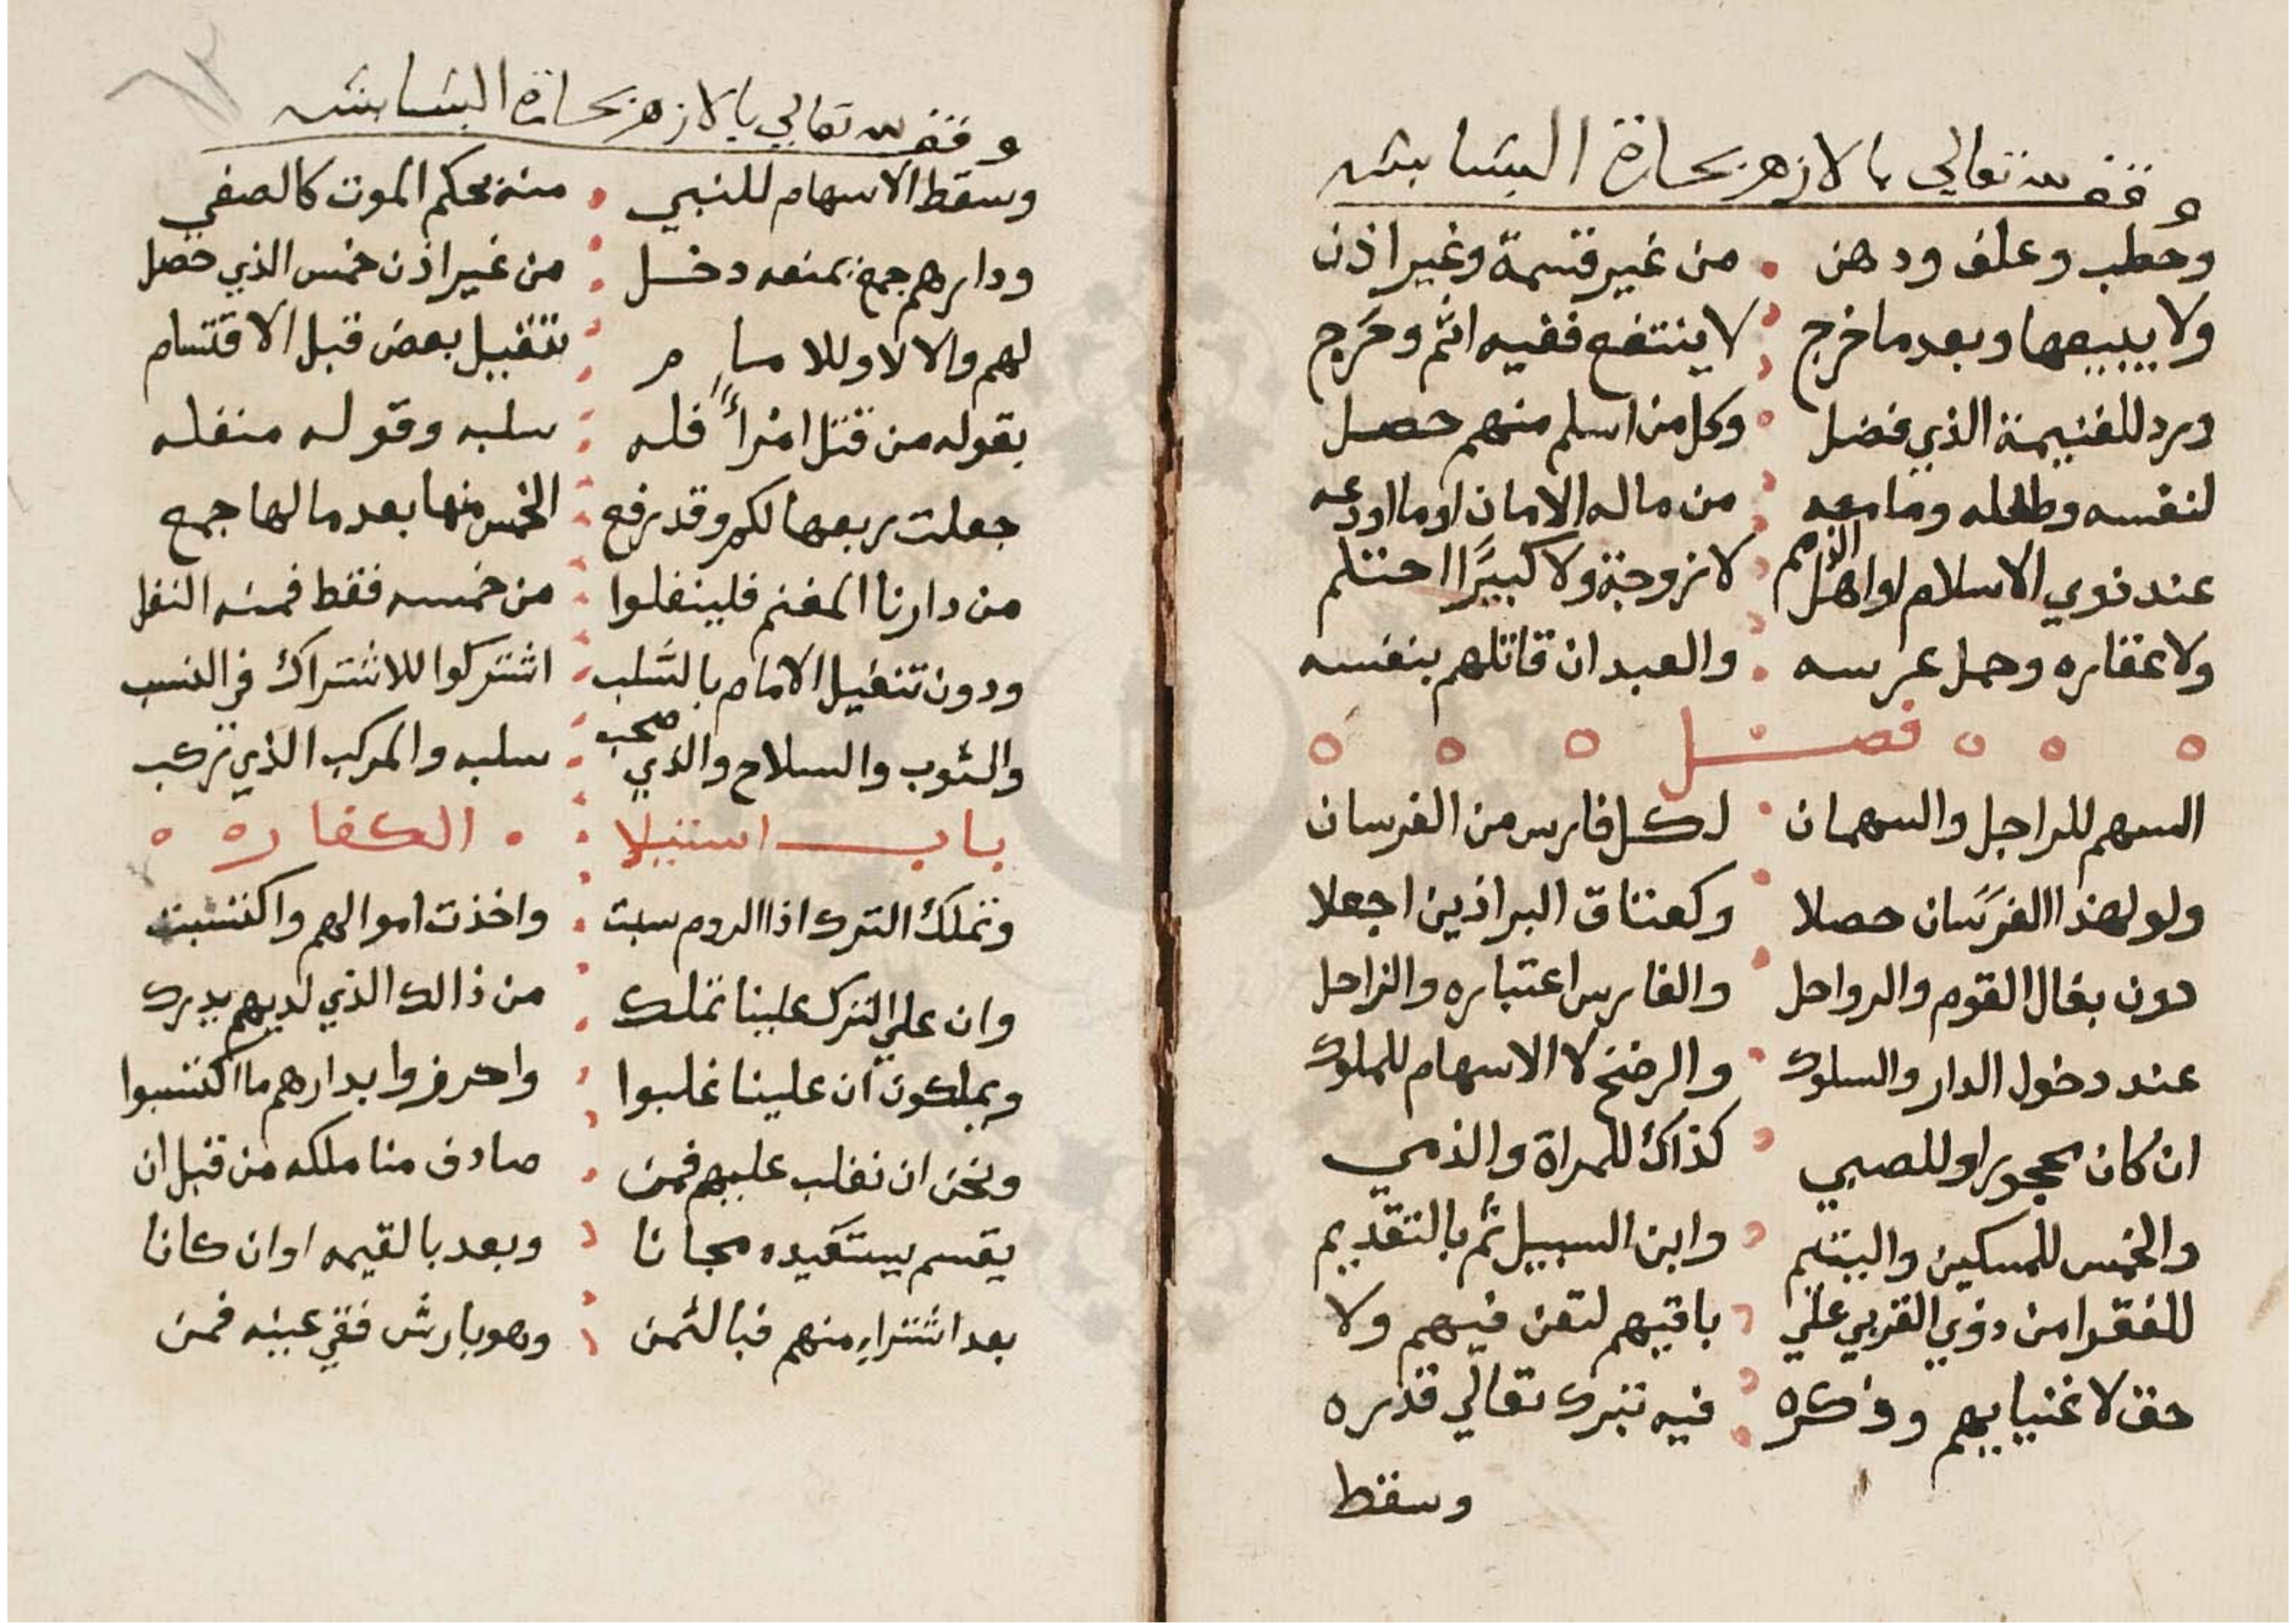 وقف لله تعالي بالازهر بحارة البشابشه
وحطب وعلف ودهن من غير قسمة وغير اذن
ولا يبيعها وبعد ما خرج لا ينتفع ففيه اثم وحرج
ورد للغنيمة الذي فضل وكل من اسلم منهم حصل
لنفسه وطفله وما معه من ماله الامان او ما اودعه
عند ذوي الاسلام او اهل الذمم لا زوجة ولا كبيرًا احتلم
ولا عقاره وحمل عرسه والعبد ان قاتلهم بنفسه
فصل
السهم للراجل والسهمان لكل فارس من الفرسان
ولو لهذا الفرسان حصلا وكعتاق البراذين اجعلا
دون بغال القوم والرواحل والفارس اعتباره والراجل
عند دخول الدار والسلوك والرضخ لا الاسهام للملوك
ان كان محجورا او للصبي كذاك للمراة والذمي
والخمس للمسكين واليتيم وابن السبيل ثم بالتقديم
للفقرا من ذوي القربي علي باقيهم لتعن فيهم ولا
حق لاغنيايهم وذكره فيه تبرك تعالي قدره
وسقط
وقف لله تعالي بالازهر بحارة البشابشه
وسقط الاسهام للنبي منه بحكم الموت كالصفي
ودارهم جمع بمنعه دخل من غير اذن خمس الذي حصل
لهم والا لا وللامام تنفيل بعض قبل الاقتسام
بقوله من قتل امرأً فله سلبه وقوله منفله
جعلت ربعها لكم وقد رفع الخمس منها بعد ما لها جمع
من دارنا المغنم فلينفلوا من خمسه فقط فمنه النفل
ودون تنفيل الامام بالسلب اشتركوا للاشتراك في النسب
والثوب والسلاح والذي صحب سلبه والمركب الذي ركب
باب استيلا الكفاره
وتملك الترك اذا الروم سبت واخذت اموالهم واكتسبت
وان علي الترك علينا تملك من ذالك الذي لديهم يدرك
ويملكون ان علينا غلبوا واحرزوا بدارهم ما اكتسبوا
ونحن ان نغلب عليهم فمن صادف منا ملكه من قبل ان
يقسم يستعيده مجانا وبعد بالقيمه او ان كانا
بعد اشتراء منهم فبالثمن وهو بارش فقي عينه فمن